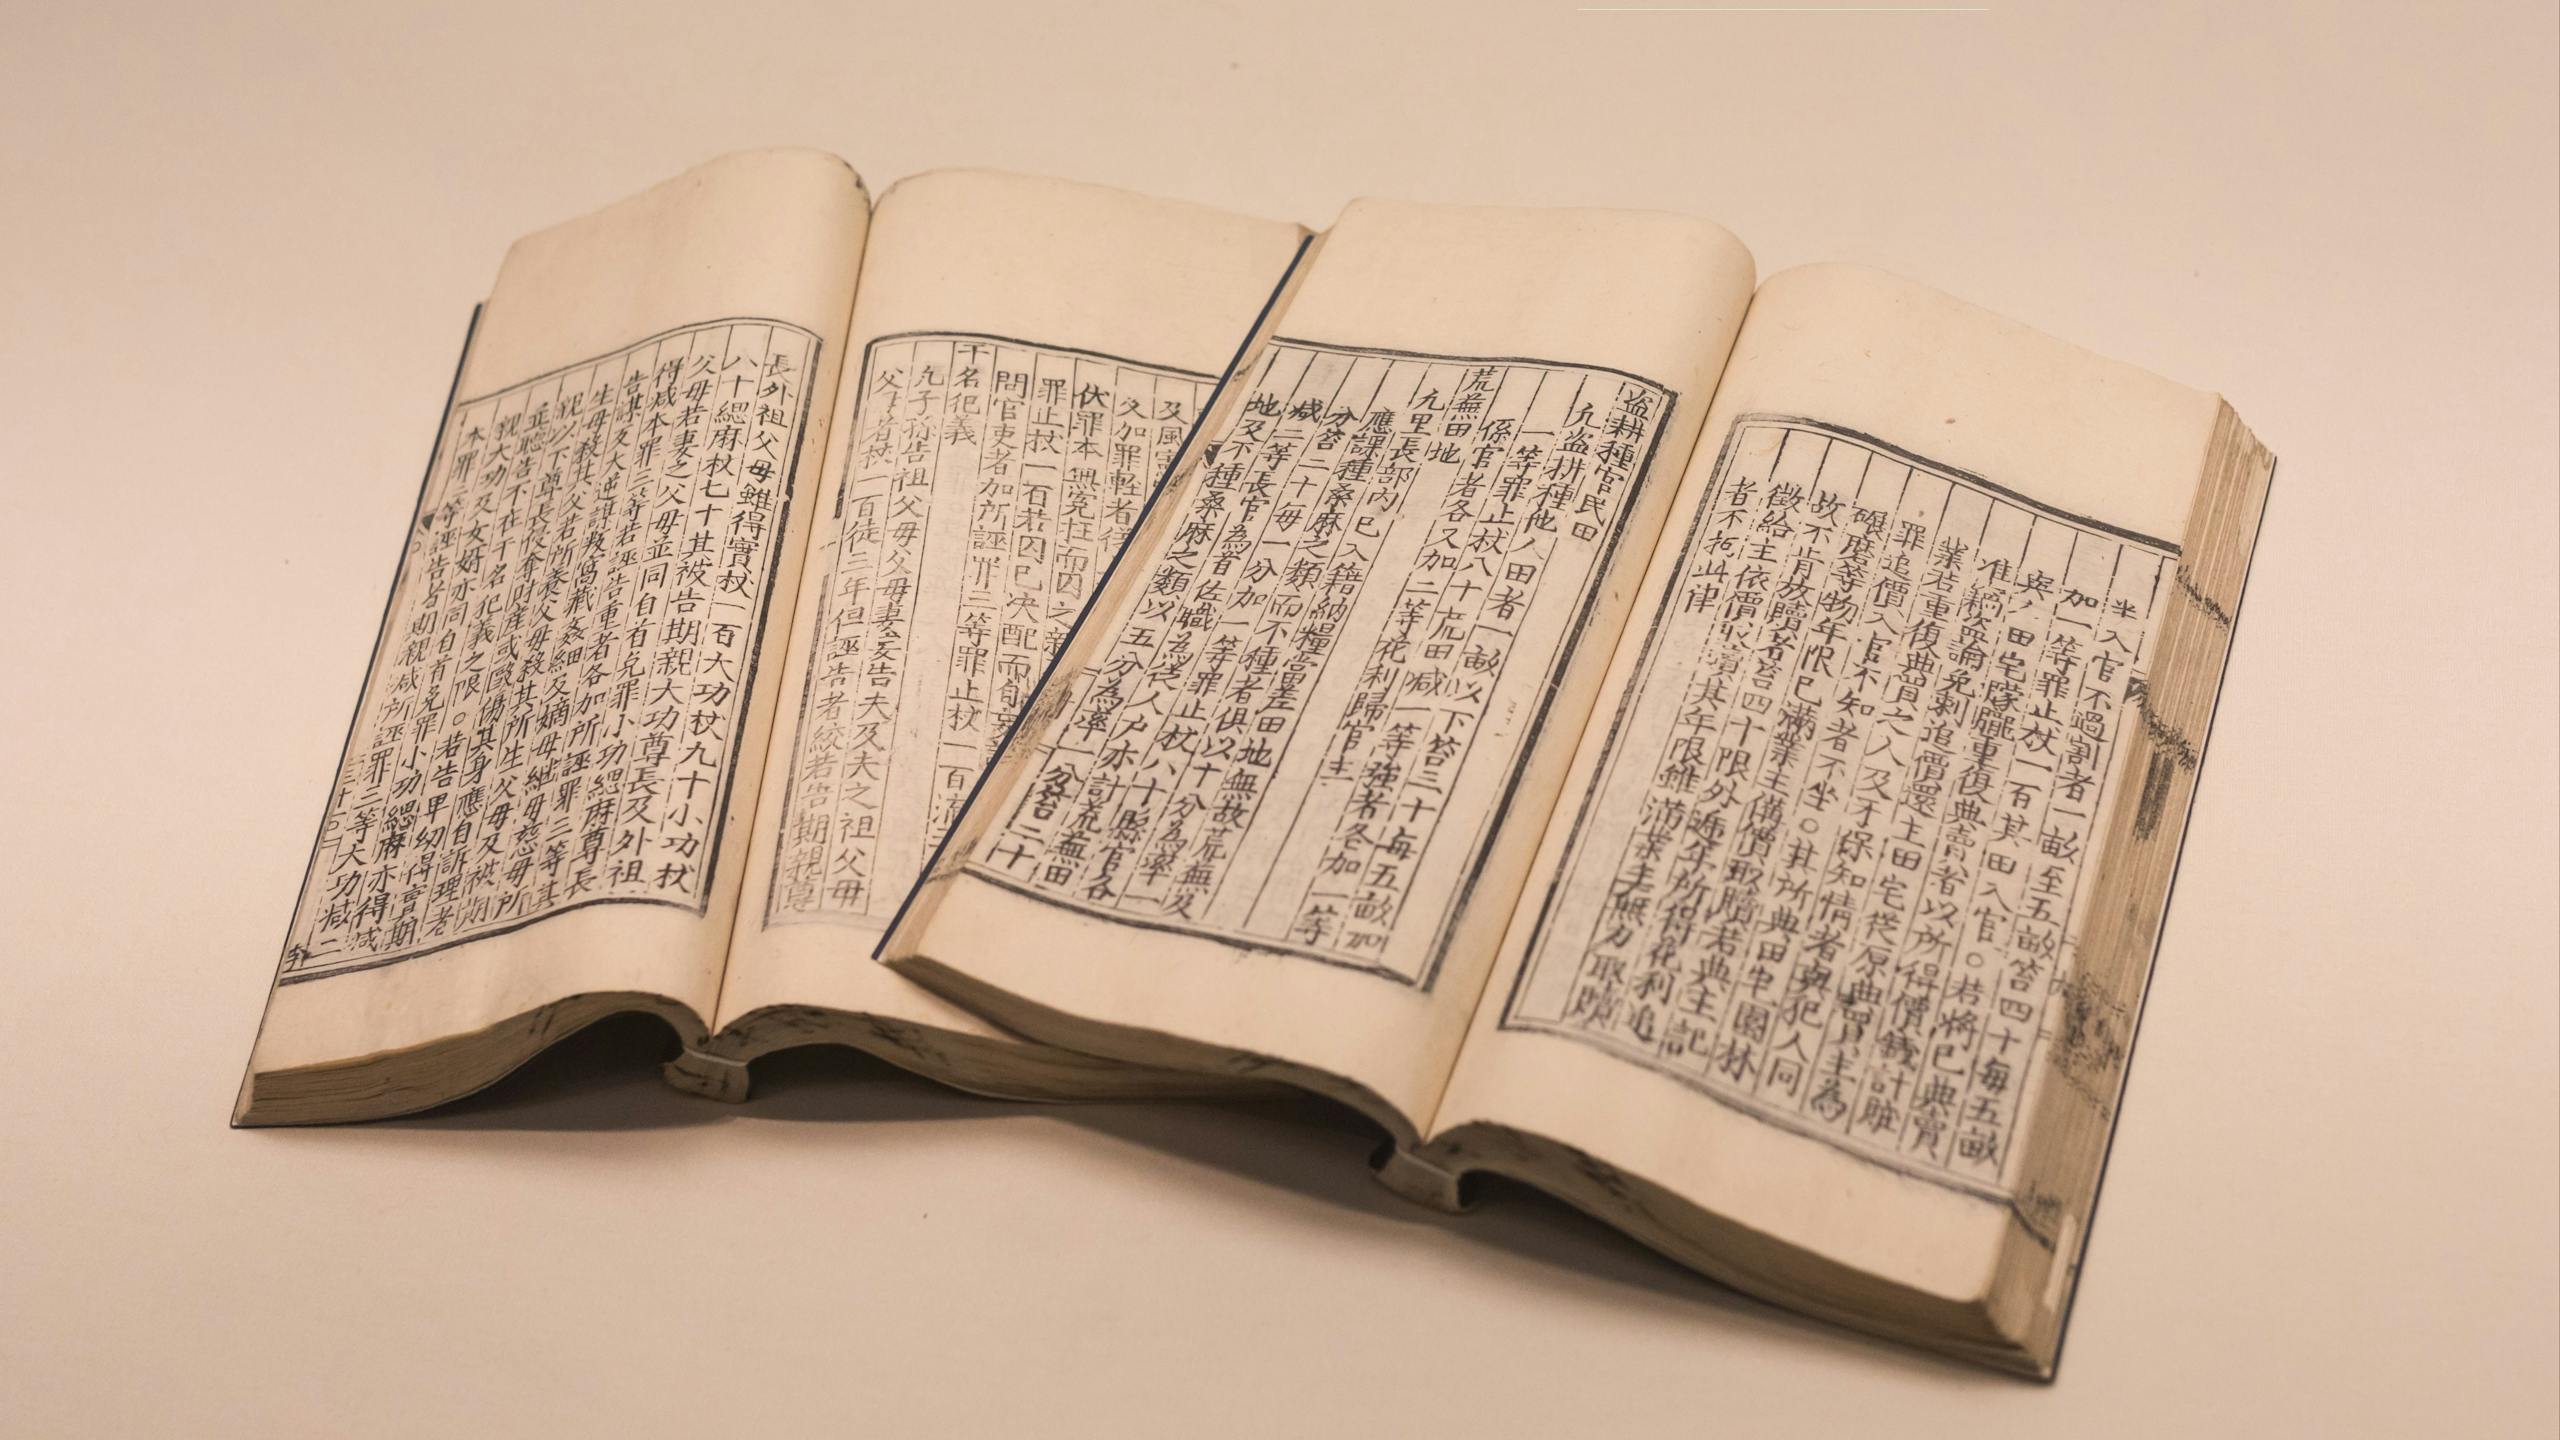 坐入官不過割者一畝至五畝笞四十每五畝
加一等罪止杖一百其田入官○若將已典賣
與人田宅朦朧重復典賣者以所得價錢計贓
准竊盜論免刺追價還主田宅從原典買主為
業若重復典買之人及牙保知情者與犯人同
罪追價入官不知者不坐○其所典田宅園林
碾磨等物年限已滿業主備價取贖若典主託
故不肯放贖者笞四十限外遞年所得花利追
徵給主依價取贖其年限雖滿業主無力取贖
者不拘此律
盗耕種官民田
凡盗耕種他人田者一畝以下笞三十每五畝加
一等罪止杖八十荒田減一等強者各加一等
係官者各又加二等花利歸官主
荒蕪田地
凡里長部內已入籍納糧當差田地無故荒蕪及
應課種桑麻之類而不種者俱以十分為率一
分笞二十每一分加一等罪止杖八十縣官各
減二等長官為首佐職為從人户亦計荒蕪田
地及不種桑麻之類以五分為率一分笞二十
及風
又加罪輕者從
伏罪本無冤枉而囚之親
罪止杖一百若囚已决配而自妄
問官吏者加所誣罪三等罪止杖一百流三
干名犯義
凡子孫告祖父母父母妻妾告夫及夫之祖父母
父母者杖一百徒三年但誣告者絞若告期親尊
長外祖父母雖得實杖一百大功杖九十小功杖
八十緦麻杖七十其被告期親大功尊長及外祖
父母若妻之父母並同自首免罪小功緦麻尊長
得減本罪三等若誣告重者各加所誣罪三等其
告謀反大逆謀叛窩藏姦細及嫡母継母慈母所
生母殺其父若所養父母殺其所生父母及被期
親以下尊長侵奪財產或毆傷其身應自訴理者
並聽告不在干名犯義之限○若告卑幼得實期
親大功及女婿亦同自首免罪小功緦麻亦得減
本罪三等誣告者期親減所誣罪三等大功減二